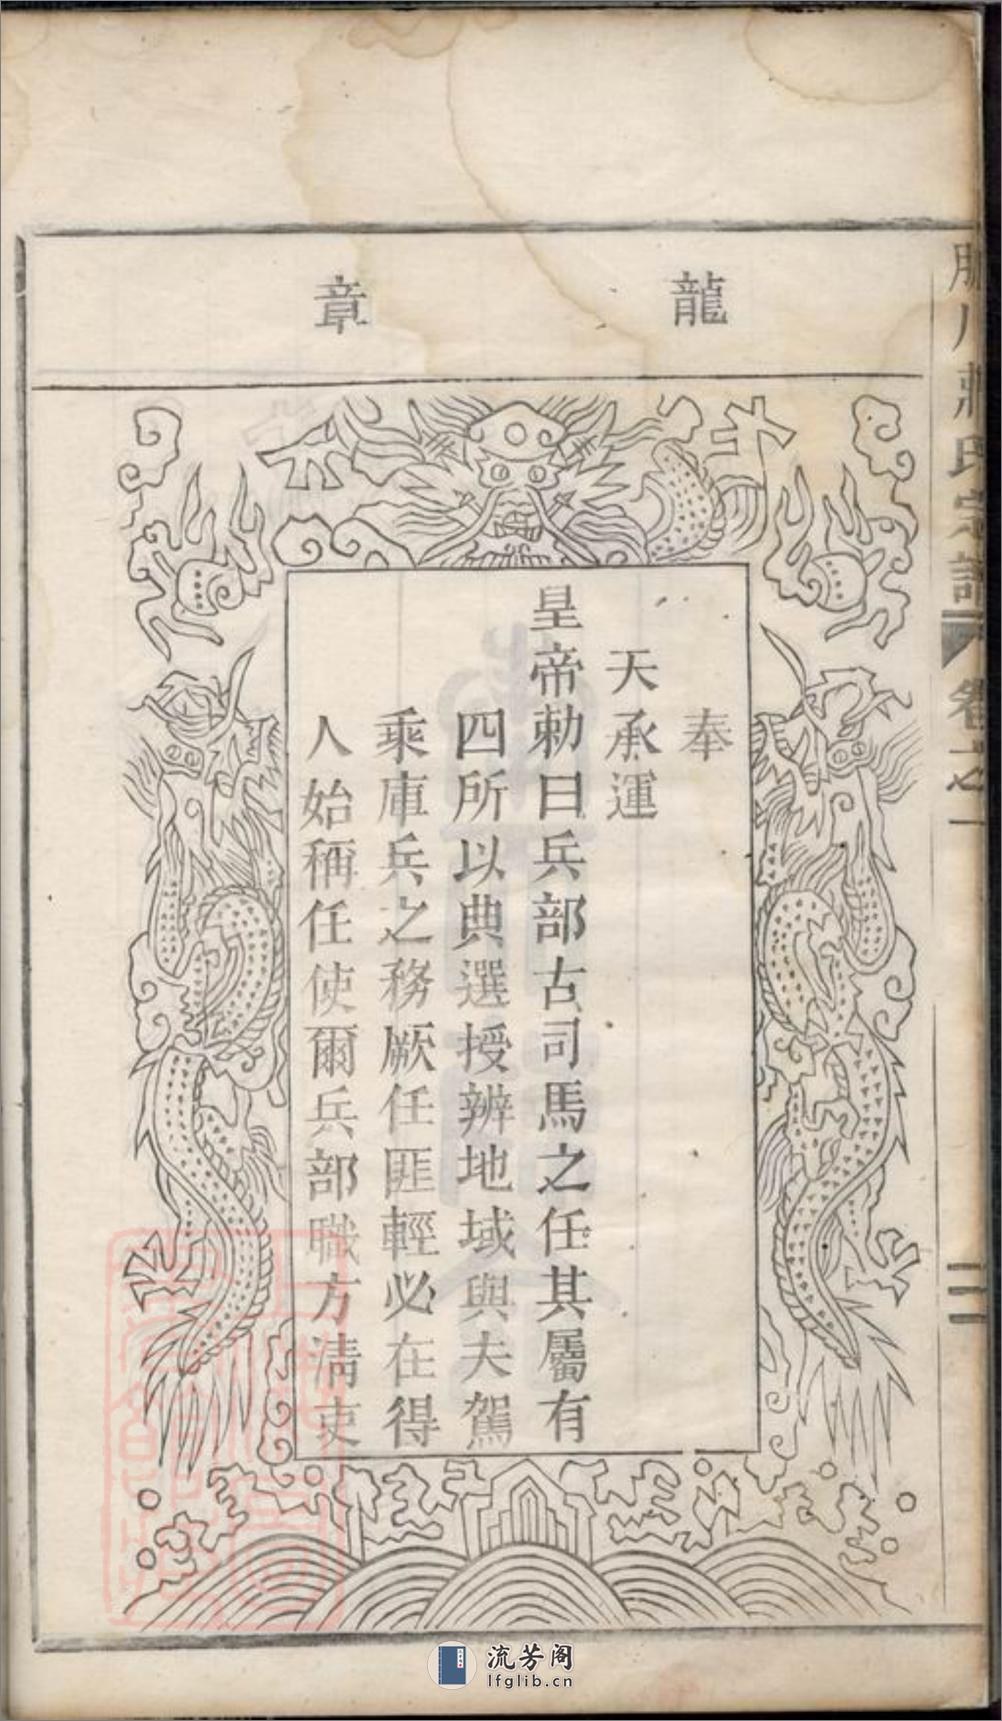 龍章
奉
天承運
皇帝勅曰兵部古司馬之任其屬有
四所以典選授辨地域與夫駕
乘庫兵之務厥任匪輕必在得
人始稱任使爾兵部職方清吏
氏宗譜
卷之一
二
流芳阁
lfglib.cn